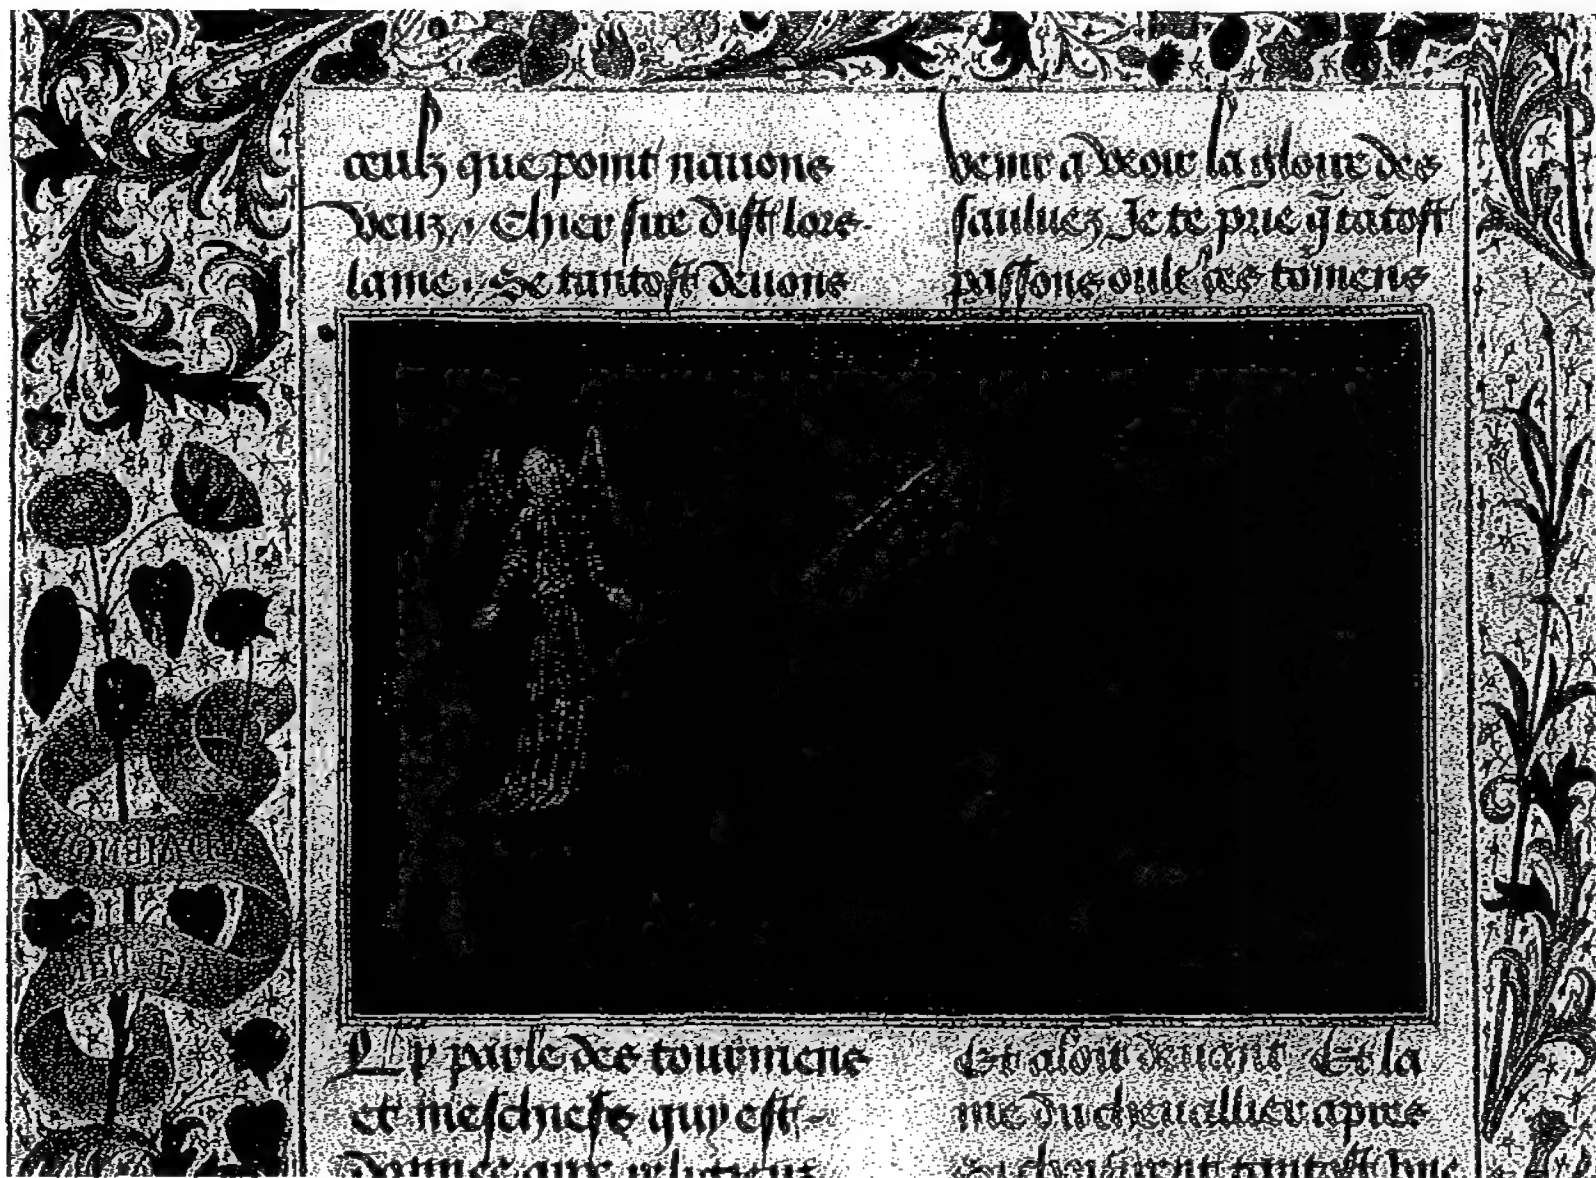 ceulz que point nauons
veuz // Chier sire dist lors
lame // Se tantost deuons
venir a veoir la gloire des
sauluez Je te prie q̃ tãtost
passons oult̃ des tormens
Cy parle des tourmens
et meschiefz quy est
Et aloit deuant Et la
me du cheuallier apres